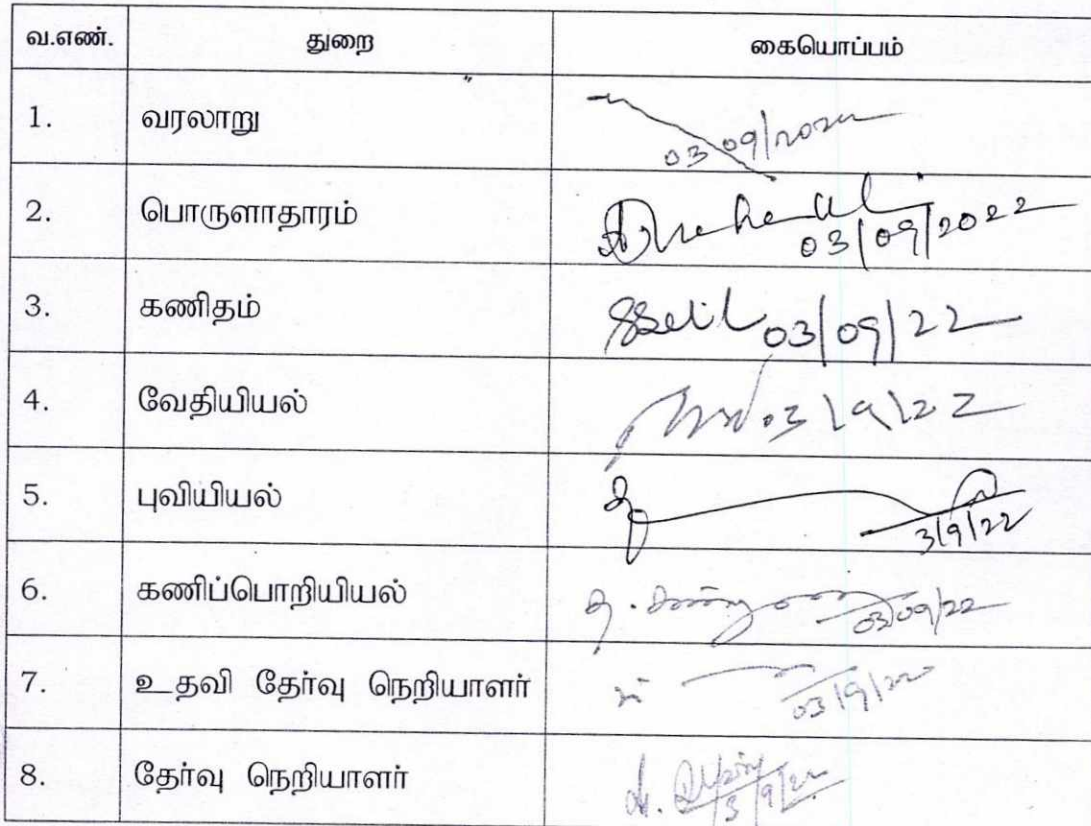 வ.எண். துறை கையொப்பம்
1. வரலாறு 03 09/2022
2. பொருளாதாரம் 03/09/2022
3. கணிதம் 03/09/22
4. வேதியியல் 03/9/22
5. புவியியல் 3/9/22
6. கணிப்பொறியியல் 03/09/22
7. உதவி தேர்வு நெறியாளர் 03/9/22
8. தேர்வு நெறியாளர் 3/9/22